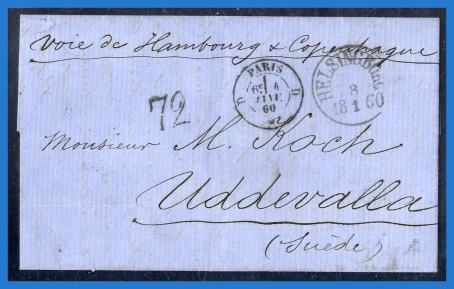 Voie de Hambourg & Copenhague
PARIS
D D
JANV.
60
HELSINGBORG
8
18 1 60
72
Monsieur M. Koch
Uddevalla
(Suède)